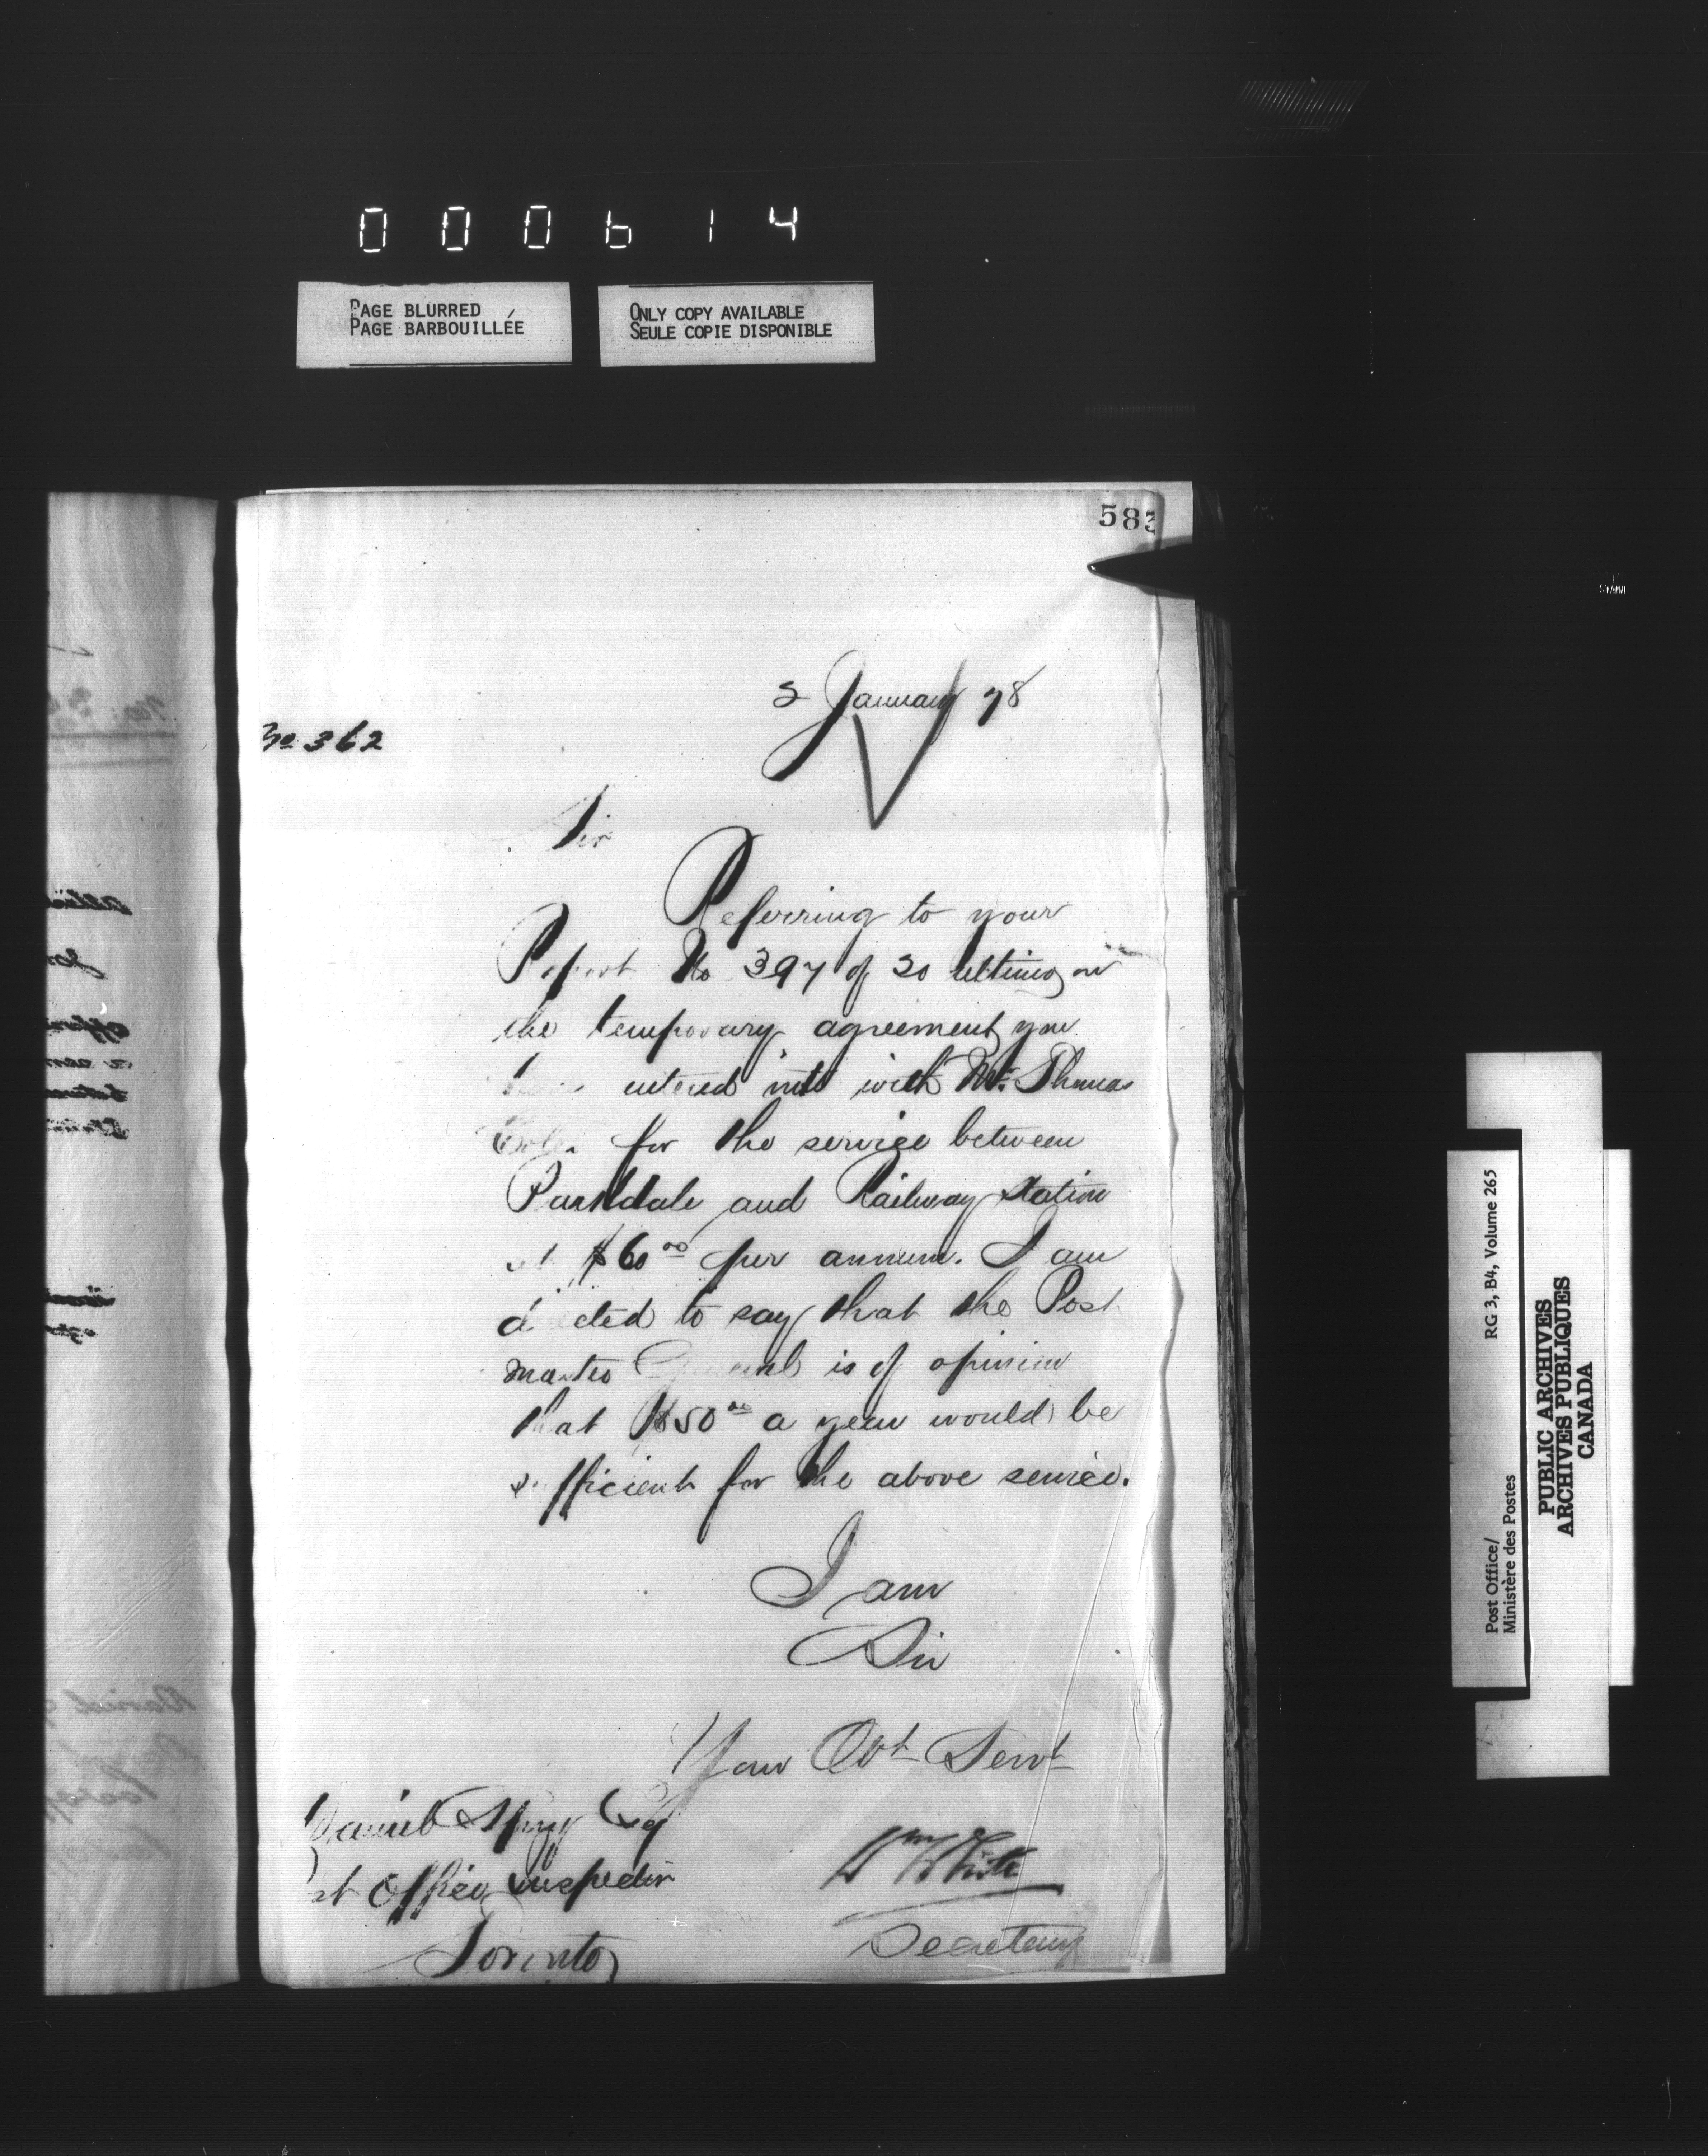 000614
PAGE BLURRED
PAGE BARBOUILLÉE
ONLY COPY AVAILABLE
SEULE COPIE DISPONIBLE
583
2 January 78
No 362
Sir
Referring to your
Report No 397 of 20 ultimo, on
the temporary agreement you
have entered into with Mr. Thomas
for the service between
Parkdale and Railway Station
at $60 00 per annum. I am
directed to say that the Post
master General is of opinion
that $50 00 a year would be
sufficient for the above service.
I am
Sir
Your Obt Servt
Daniel Spry Esq
Post Office Inspector
Toronto
Wm White
Secretary
Post Office/
Ministère des Postes
RG 3, B4, Volume 265
PUBLIC ARCHIVES
ARCHIVES PUBLIQUES
CANADA